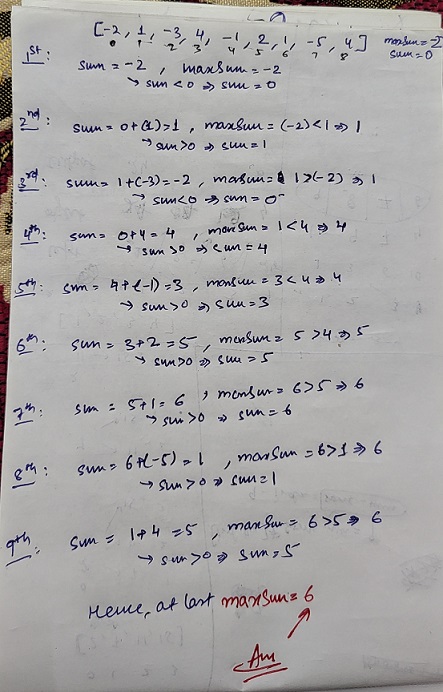 [-2, 1, -3, 4, -1, 2, 1, -5, 4] maxSum = -2
0 1 2 3 4 5 6 7 8 sum = 0
1st: sum = -2, maxSum = -2
→ sum < 0 ⇒ sum = 0
2nd: sum = 0+(1) = 1, maxSum = (-2) < 1 ⇒ 1
→ sum > 0 ⇒ sum = 1
3rd: sum = 1+(-3) = -2, maxSum = 1 > (-2) ⇒ 1
→ sum < 0 ⇒ sum = 0
4th: sum = 0+4 = 4, maxSum = 1 < 4 ⇒ 4
→ sum > 0 ⇒ sum = 4
5th: sum = 4+(-1) = 3, maxSum = 3 < 4 ⇒ 4
→ sum > 0 ⇒ sum = 3
6th: sum = 3+2 = 5, maxSum = 5 > 4 ⇒ 5
→ sum > 0 ⇒ sum = 5
7th: sum = 5+1 = 6, maxSum = 6 > 5 ⇒ 6
→ sum > 0 ⇒ sum = 6
8th: sum = 6+(-5) = 1, maxSum = 6 > 1 ⇒ 6
→ sum > 0 ⇒ sum = 1
9th: sum = 1+4 = 5, maxSum = 6 > 5 ⇒ 6
→ sum > 0 ⇒ sum = 5
Hence, at last maxSum = 6
Ans